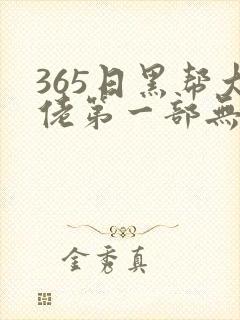 365日黑帮大
佬第一部無
金秀真